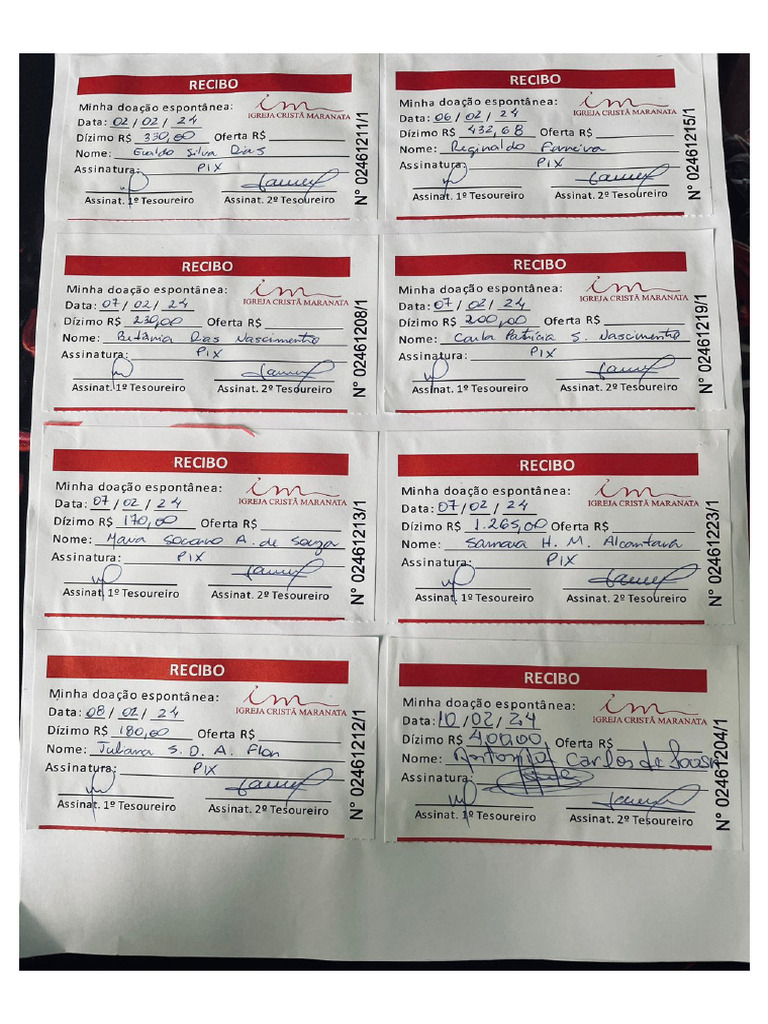 RECIBO
Minha doação espontânea:
im
IGREJA CRISTÃ MARANATA
Data: 02 / 02 / 24
Dízimo R$ 330,00 Oferta R$
Nome: Evaldo Silva Dias
Assinatura: PIX
Assinat. 1º Tesoureiro Assinat. 2º Tesoureiro
N° 02461211/1
RECIBO
Minha doação espontânea:
im
IGREJA CRISTÃ MARANATA
Data: 06 / 02 / 24
Dízimo R$ 432,68 Oferta R$
Nome: Reginaldo Ferreira
Assinatura: PIX
Assinat. 1º Tesoureiro Assinat. 2º Tesoureiro
N° 02461215/1
RECIBO
Minha doação espontânea:
im
IGREJA CRISTÃ MARANATA
Data: 07 / 02 / 24
Dízimo R$ 230,00 Oferta R$
Nome: Betânia Dias Nascimento
Assinatura: PIX
Assinat. 1º Tesoureiro Assinat. 2º Tesoureiro
N° 02461208/1
RECIBO
Minha doação espontânea:
im
IGREJA CRISTÃ MARANATA
Data: 07 / 02 / 24
Dízimo R$ 200,00 Oferta R$
Nome: Carla Patrícia S. Nascimento
Assinatura: PIX
Assinat. 1º Tesoureiro Assinat. 2º Tesoureiro
N° 02461219/1
RECIBO
Minha doação espontânea:
im
IGREJA CRISTÃ MARANATA
Data: 07 / 02 / 24
Dízimo R$ 170,00 Oferta R$
Nome: Maria Socorro A. de Souza
Assinatura: PIX
Assinat. 1º Tesoureiro Assinat. 2º Tesoureiro
N° 02461213/1
RECIBO
Minha doação espontânea:
im
IGREJA CRISTÃ MARANATA
Data: 07 / 02 / 24
Dízimo R$ 1.265,00 Oferta R$
Nome: Samara H. M. Alcantara
Assinatura: PIX
Assinat. 1º Tesoureiro Assinat. 2º Tesoureiro
N° 02461223/1
RECIBO
Minha doação espontânea:
im
IGREJA CRISTÃ MARANATA
Data: 08 / 02 / 24
Dízimo R$ 180,00 Oferta R$
Nome: Juliana S. D. A. Flor
Assinatura: PIX
Assinat. 1º Tesoureiro Assinat. 2º Tesoureiro
N° 02461212/1
RECIBO
Minha doação espontânea:
im
IGREJA CRISTÃ MARANATA
Data: 10 / 02 / 24
Dízimo R$ 400,00 Oferta R$
Nome: Antonio Carlos de
Assinatura:
Assinat. 1º Tesoureiro Assinat. 2º Tesoureiro
N° 02461204/1